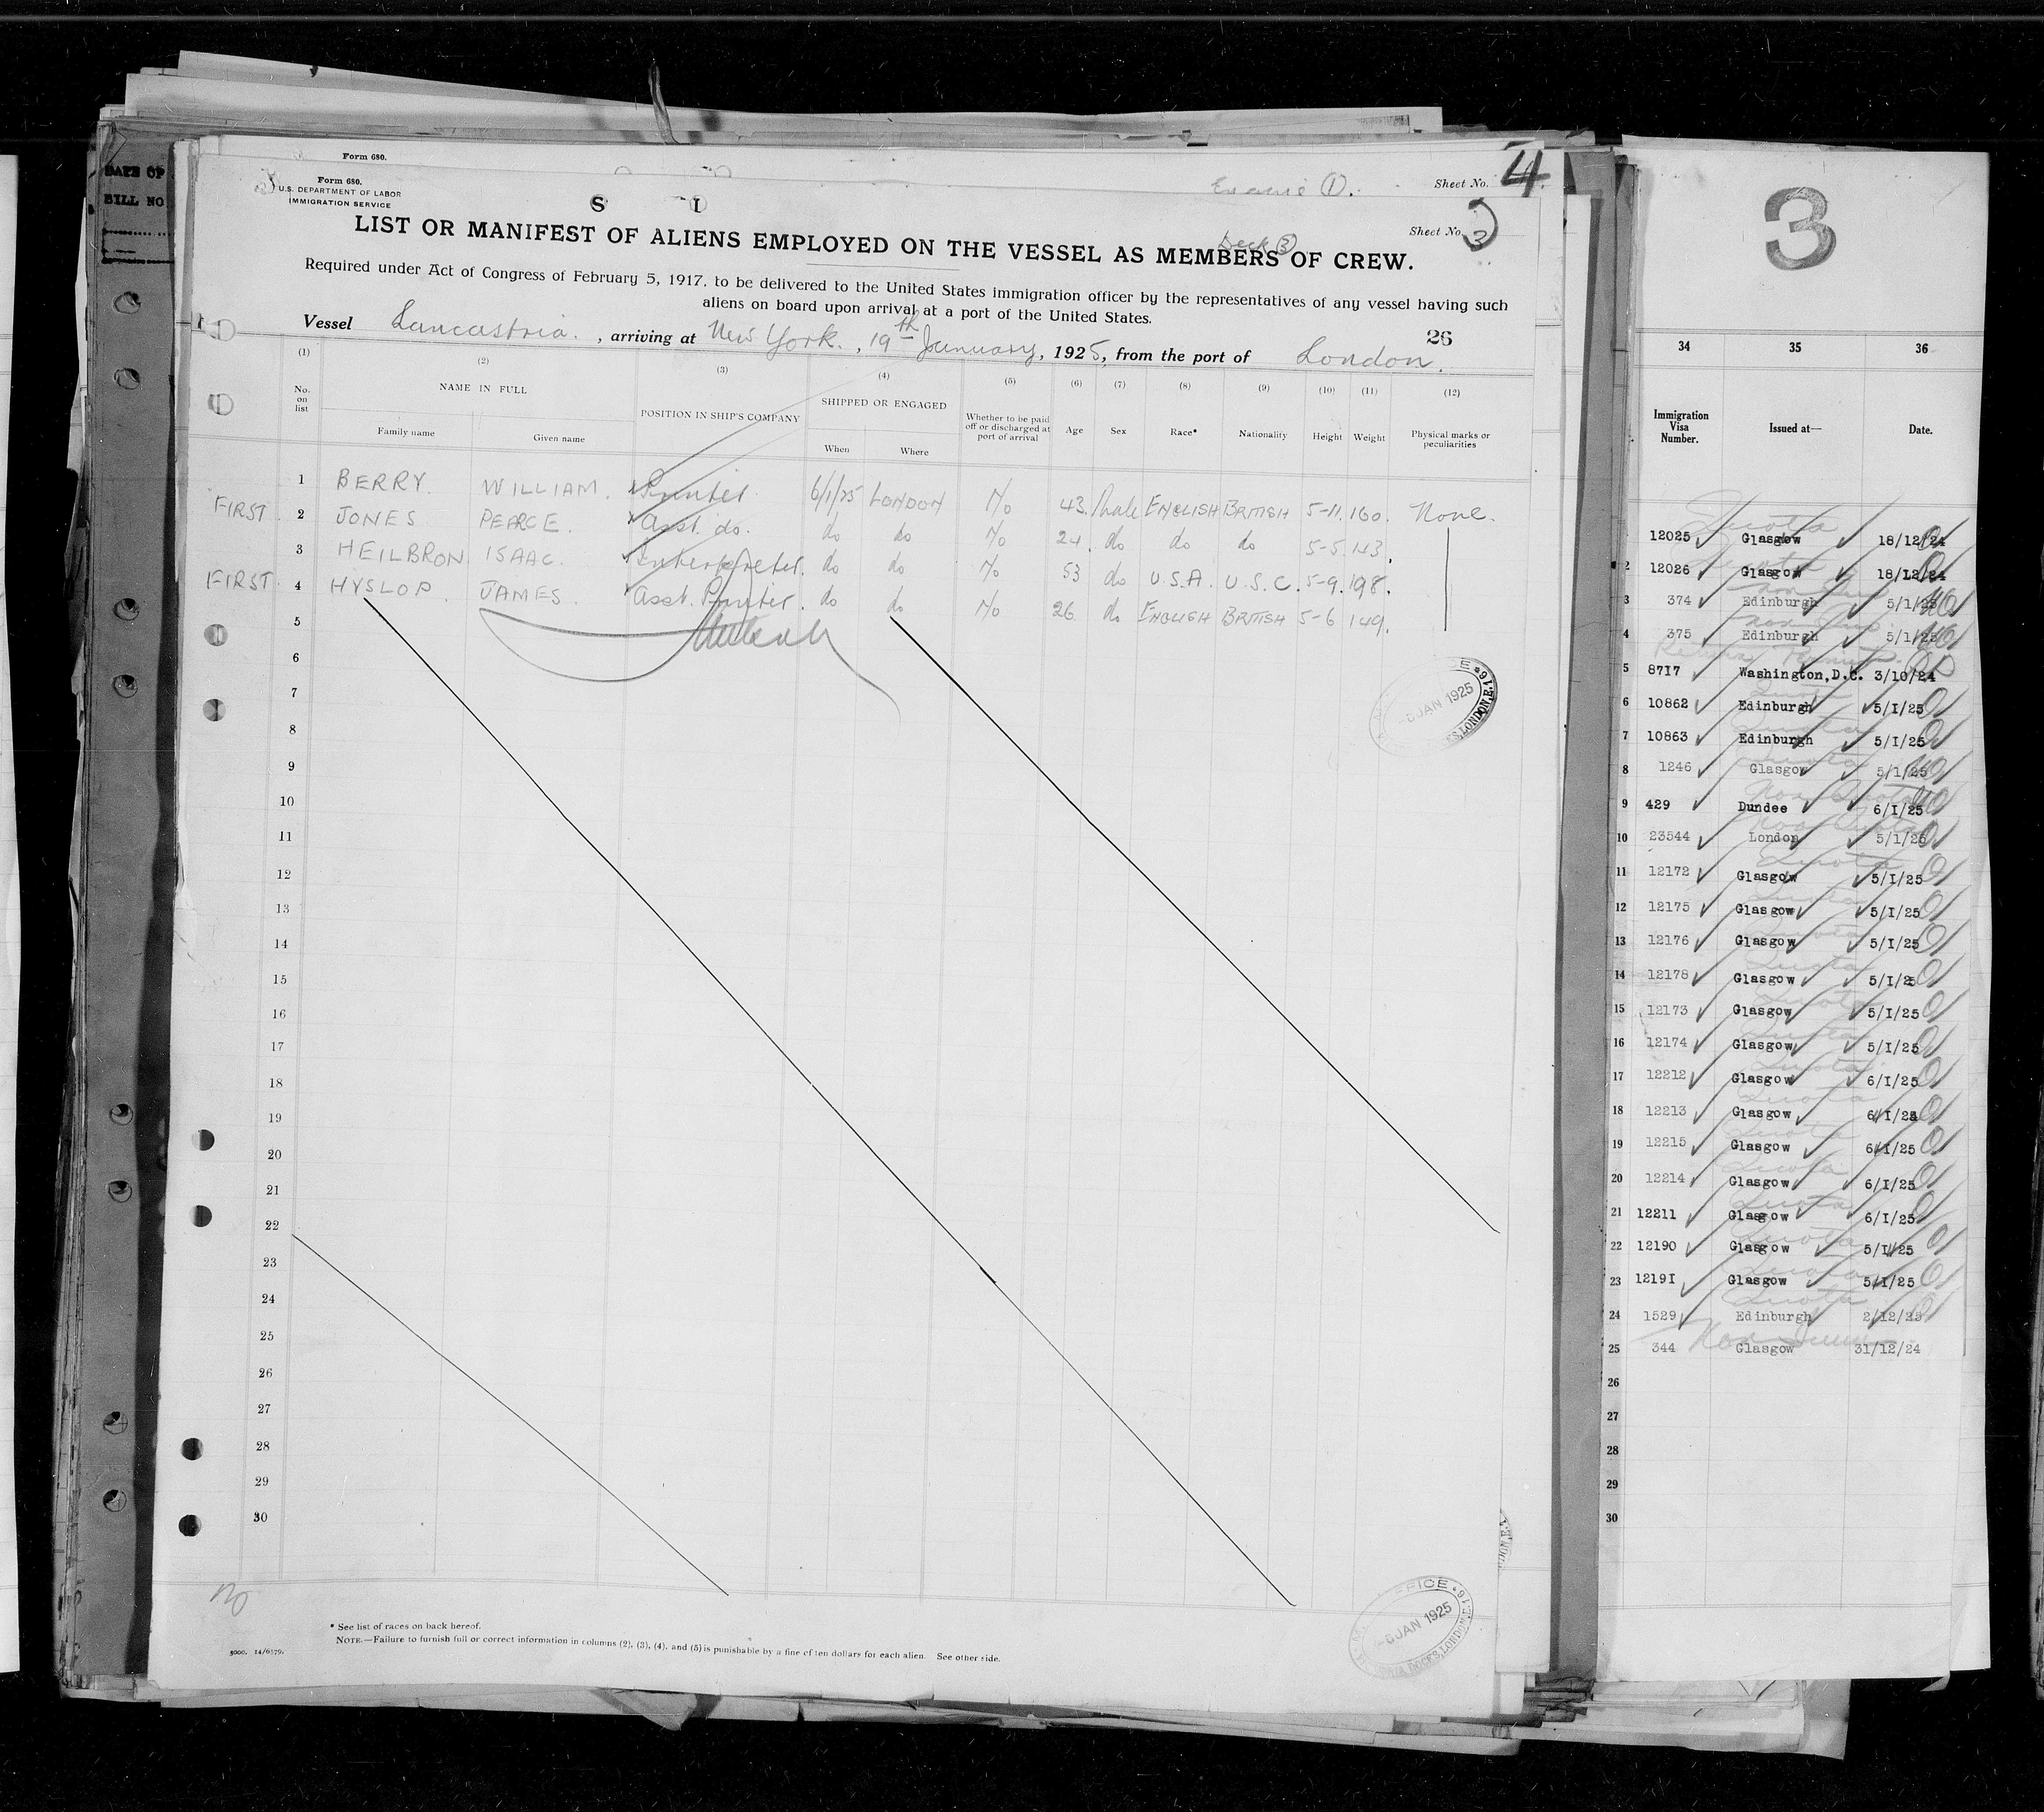 DATE OF
BILL NO
Form 680.
Sheet No. 4
Form 680.
U.S. DEPARTMENT OF LABOR
IMMIGRATION SERVICE
S I
Deck 3
Sheet No. 3
LIST OR MANIFEST OF ALIENS EMPLOYED ON THE VESSEL AS MEMBERS OF CREW.
Required under Act of Congress of February 5, 1917, to be delivered to the United States immigration officer by the representatives of any vessel having such
aliens on board upon arrival at a port of the United States.
26
Vessel Lancastria. , arriving at New York. , 19th January, 1925, from the port of London.
(1) (2) (3) (4) (5) (6) (7) (8) (9) (10) (11) (12)
No. on list NAME IN FULL POSITION IN SHIP'S COMPANY SHIPPED OR ENGAGED Whether to be paid off or discharged at port of arrival Age Sex Race* Nationality Height Weight Physical marks or peculiarities
Family name Given name When Where
1 BERRY. WILLIAM. Printer. 6/1/25 LONDON N/o 43. Male ENGLISH BRITISH 5-11. 160. None.
FIRST 2 JONES PEARCE. Asst. do. do do N/o 24. do do do 5-5. 143.
3 HEILBRON ISAAC. Interpreter. do do N/o 53 do U.S.A. U.S.C. 5-9. 198.
FIRST 4 HYSLOP. JAMES. Asst. Printer. do do N/o 26 do ENGLISH BRITISH 5-6 149.
5
6
7
8
9
10
11
12
13
14
15
16
17
18
19
20
21
22
23
24
25
26
27
28
29
30
JAN 1925
LONDON, E.16
* See list of races on back hereof.
NOTE.—Failure to furnish full or correct information in columns (2), (3), (4), and (5) is punishable by a fine of ten dollars for each alien. See other side.
5000. 14/6579.
JAN 1925
DOCKS, LONDON, E.16
3
34 35 36
Immigration Visa Number. Issued at— Date.
12025 Glasgow 18/12/24
2 12026 Glasgow 18/12/24
3 374 Edinburgh 5/1/25
4 375 Edinburgh 5/1/25
5 8717 Washington, D.C. 3/10/24
6 10862 Edinburgh 5/I/25
7 10863 Edinburgh 5/I/25
8 1246 Glasgow 5/1/25
9 429 Dundee 6/I/25
10 23544 London 5/1/25
11 12172 Glasgow 5/I/25
12 12175 Glasgow 5/I/25
13 12176 Glasgow 5/I/25
14 12178 Glasgow 5/I/25
15 12173 Glasgow 5/I/25
16 12174 Glasgow 5/I/25
17 12212 Glasgow 6/I/25
18 12213 Glasgow 6/I/25
19 12215 Glasgow 6/I/25
20 12214 Glasgow 6/I/25
21 12211 Glasgow 6/I/25
22 12190 Glasgow 5/I/25
23 1219I Glasgow 5/I/25
24 1529 Edinburgh 2/12/25
25 344 Glasgow 31/12/24
26
27
28
29
30